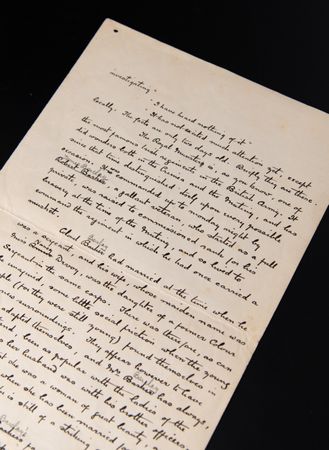 investigating."
"I have heard nothing of it."
"It has not excited much attention yet, except
locally. The facts are only two days old. Briefly they are these:
"The Royal Munsters is, as you know, one of
the most famous Irish regiments in the British Army. It
did wonders both in the Crimea and the Mutiny, and has
since that time distinguished itself upon every possible
occasion. It was commanded up to Monday night by
a gallant veteran, who started as a full
private, was raised to commissioned rank for his
bravery at the time of the Mutiny, and so lived to
command the regiment in which he had once carried a
musket.
had married at the time when he
was a sergeant, and his wife, whose maiden name was
Miss Devoy, was the daughter of a former Colour
Sergeant in the same corps. There was therefore, as can
imagined some little social friction when the young
(for they were still young) found themselves in
new surroundings. They appear however to have
adapted themselves, and Mrs has always,
been as popular with the ladies of the
as her husband was with his brother officers.
that she was a woman of great beauty, and
when she has been married for
she is still of a striking